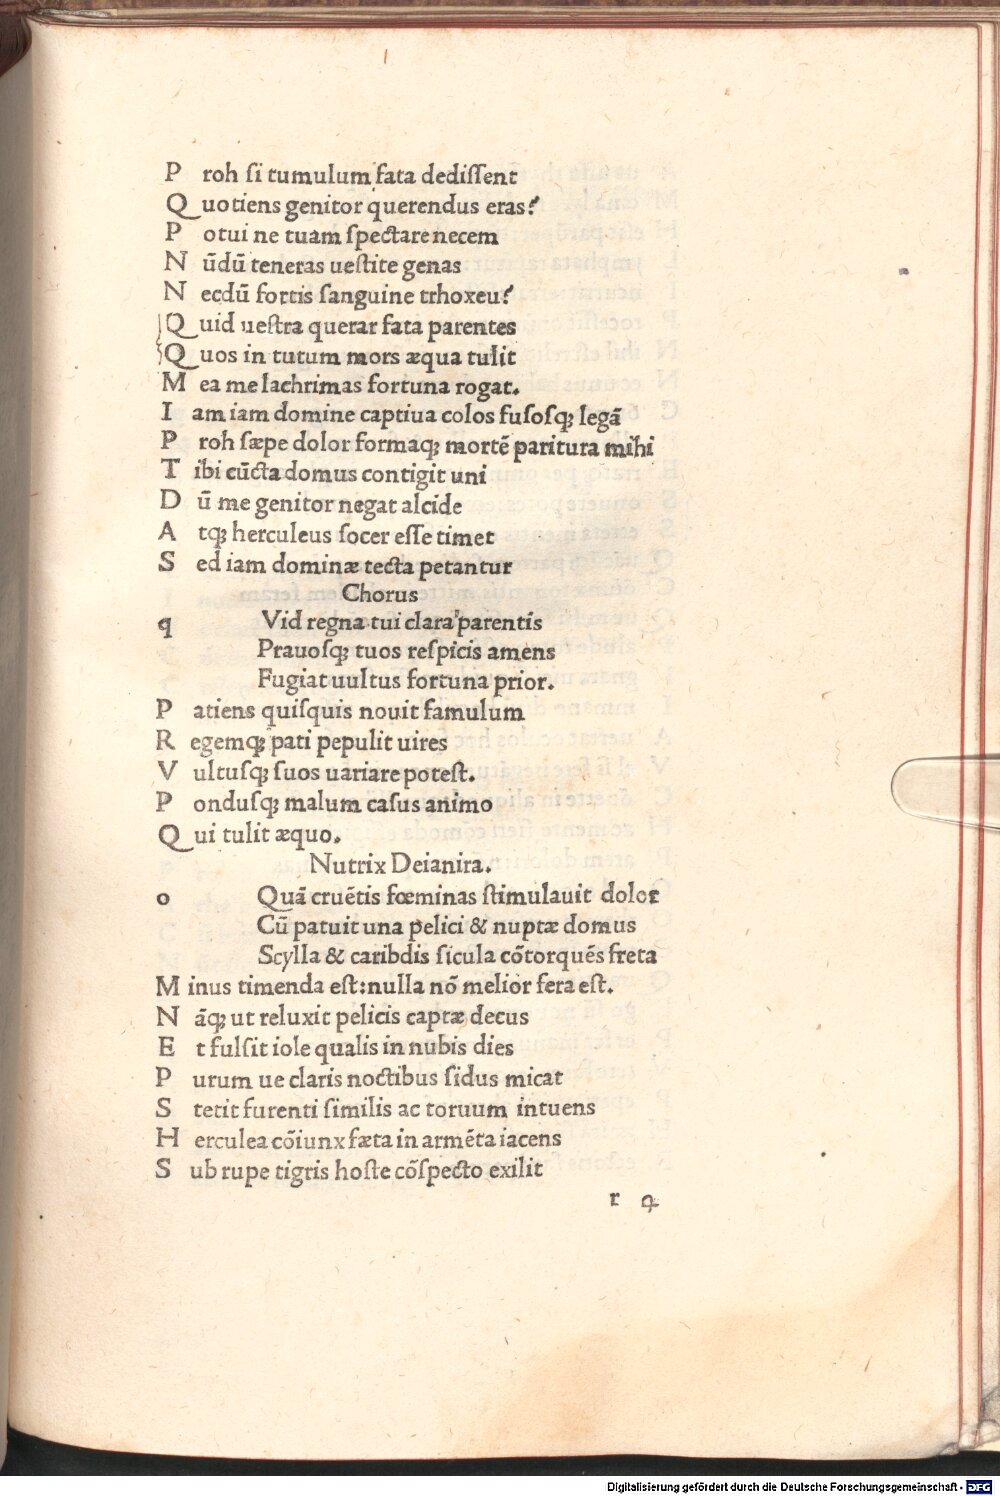 P roh si tumulum fata dedissent
Q uotiens genitor querendus eras?
P otui ne tuam spectare necem
N ūdū teneras uestite genas
N ecdū fortis sanguine trhoxeu?
Q uid uestra querar fata parentes
Q uos in tutum mors æqua tulit
M ea me lachrimas fortuna rogat.
I am iam domine captiua colos fusosqꝫ legā
P roh sæpe dolor formaqꝫ mortē paritura mihi
T ibi cūcta domus contigit uni
D ū me genitor negat alcide
A tqꝫ herculeus socer esse timet
S ed iam dominæ tecta petantur
Chorus
q Vid regna tui clara parentis
Prauosqꝫ tuos respicis amens
Fugiat uultus fortuna prior.
P atiens quisquis nouit famulum
R egemqꝫ pati pepulit uires
V ultusqꝫ suos uariare potest.
P ondusqꝫ malum casus animo
Q ui tulit æquo.
Nutrix Deianira.
o Quā cruētis fœminas stimulauit dolor
Cū patuit una pelici & nuptæ domus
Scylla & caribdis sicula cōtorquēs freta
M inus timenda est: nulla nō melior fera est.
N āqꝫ ut reluxit pelicis captæ decus
E t fulsit iole qualis in nubis dies
P urum ue claris noctibus sidus micat
S tetit furenti similis ac toruum intuens
H erculea cōiunx fæta in armēta iacens
S ub rupe tigris hoste cōspecto exilit
r 4
Digitalisierung gefördert durch die Deutsche Forschungsgemeinschaft - DFG